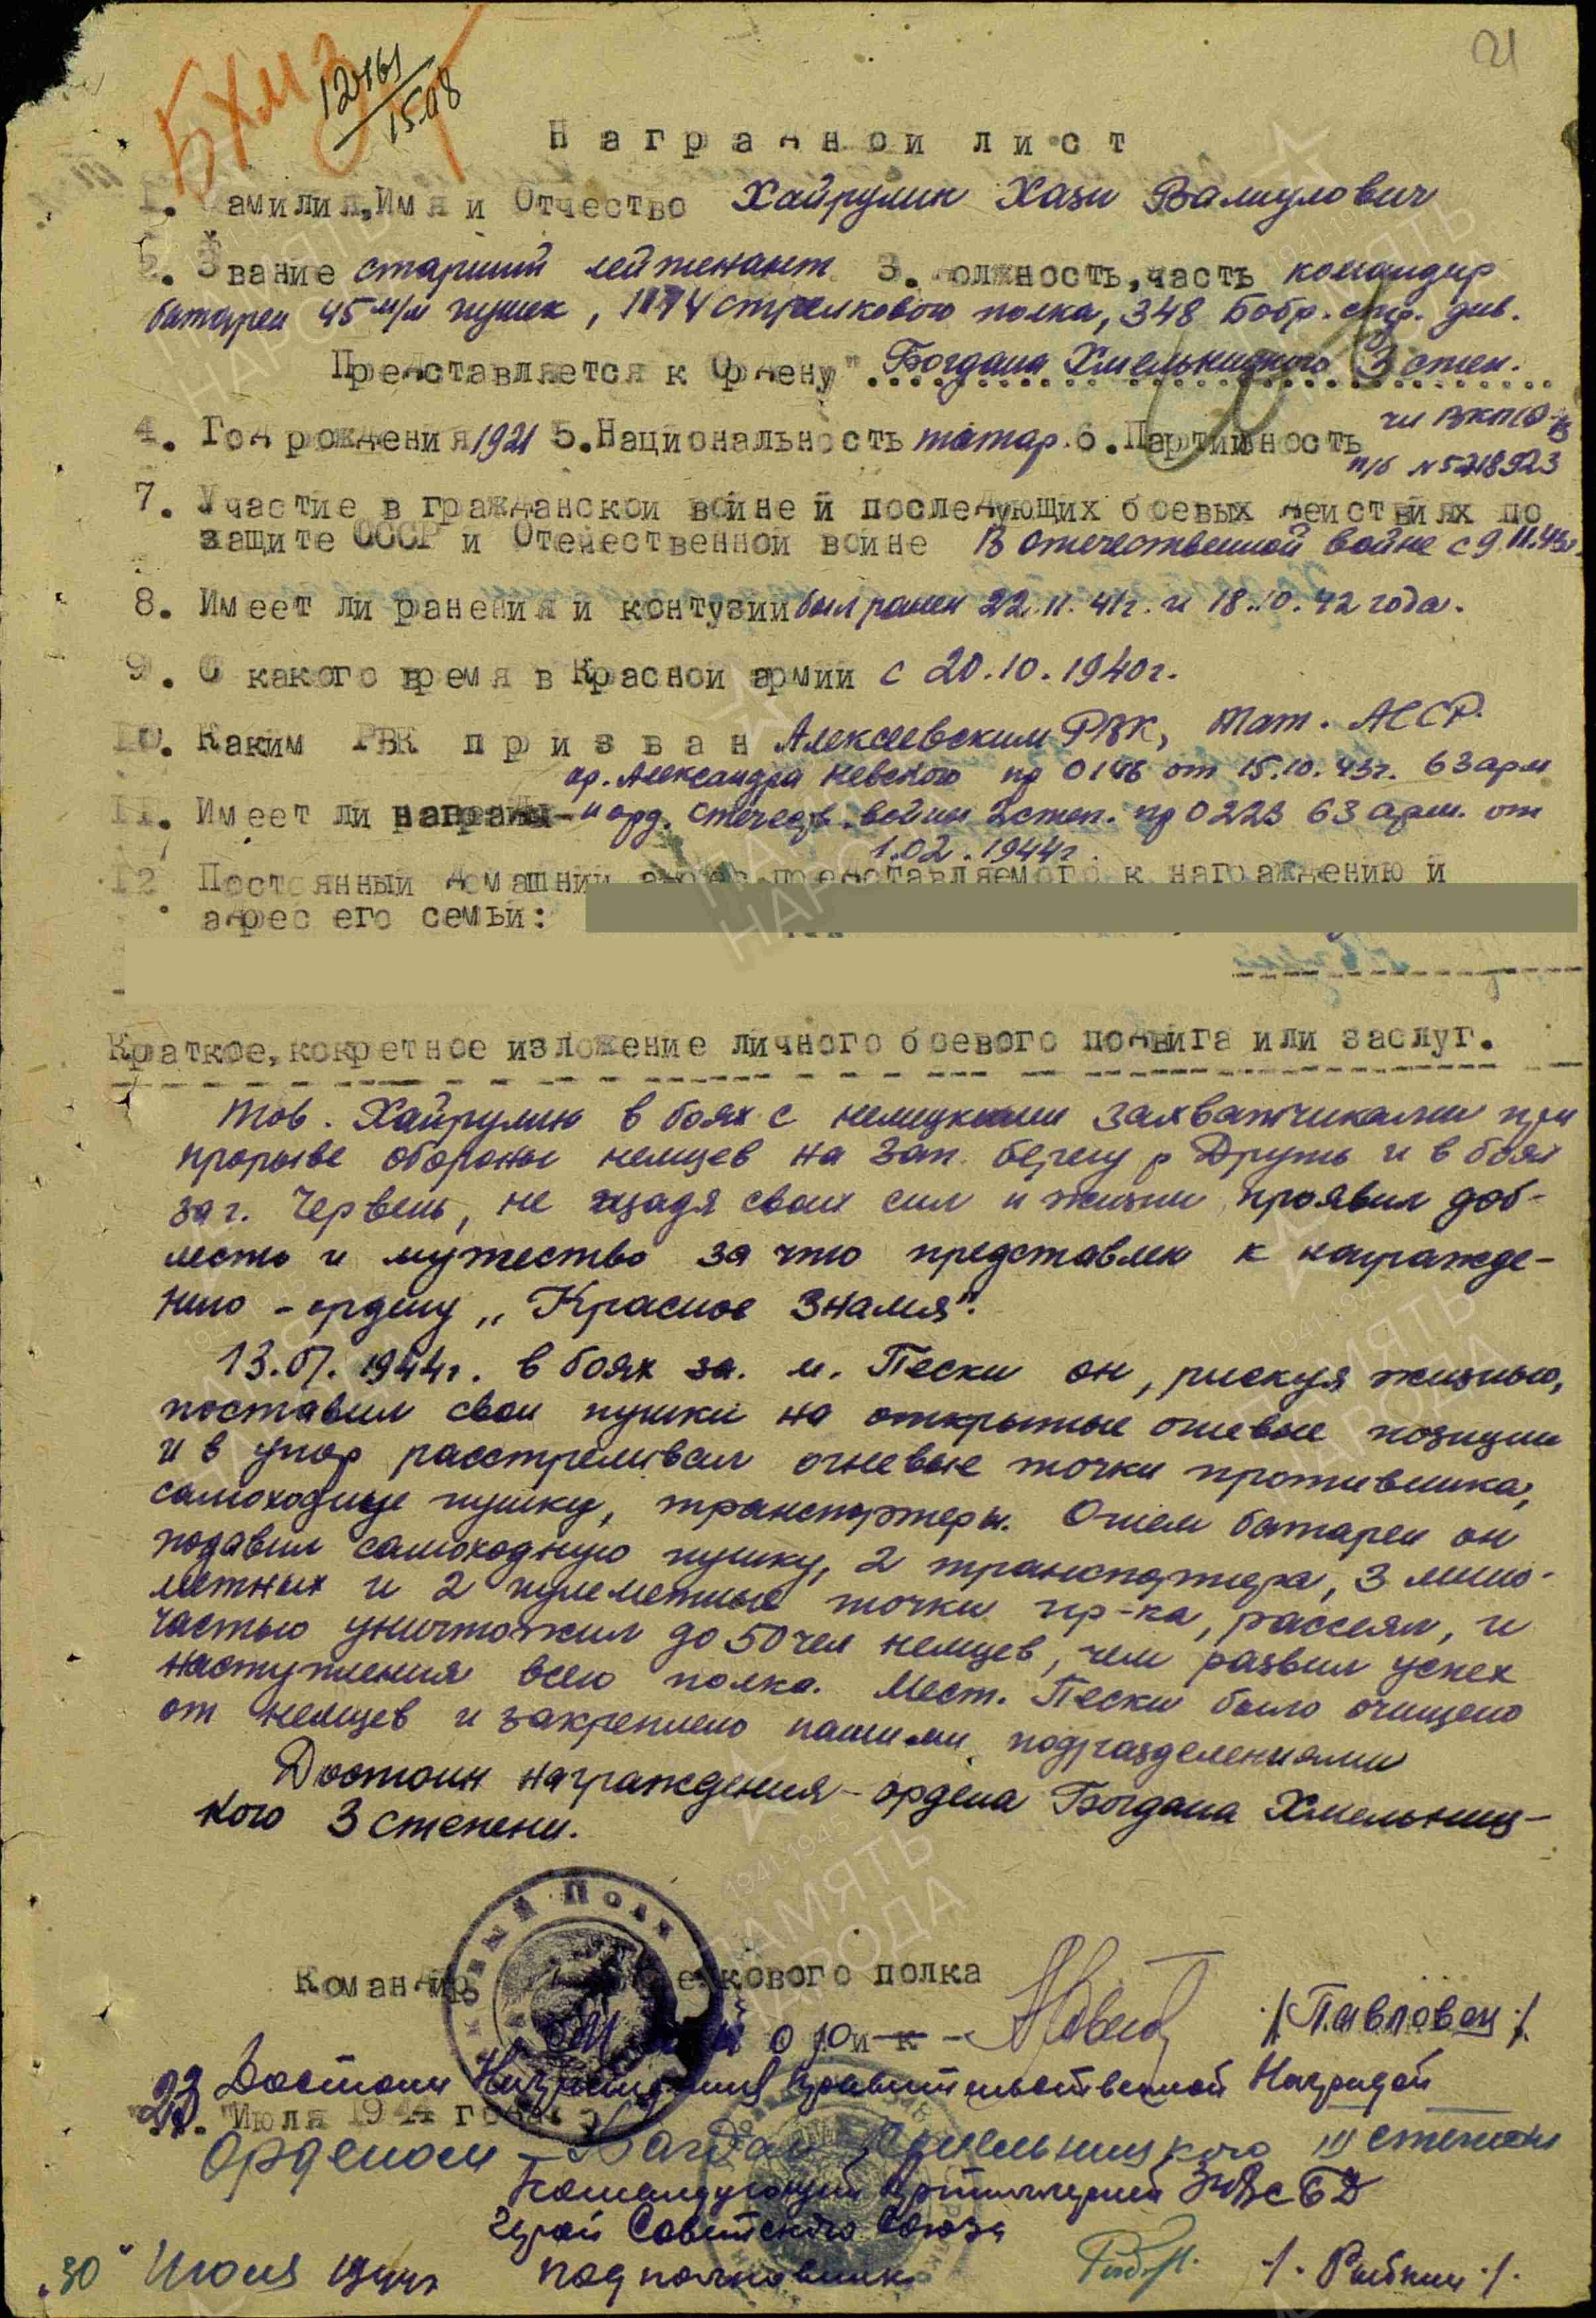 21
БХМЗ
12461
1508
Наградной лист
1. Фамилия, Имя и Отчество Хайрулин Хази Валиулович
2. Звание старший лейтенант 3. Должность, часть командир
батареи 45 м/м пушек, 1174 стрелкового полка, 348 Бобр. стр. див.
Представляется к Ордену "Богдана Хмельницкого 3 степ.
4. Год рождения 1921 5. Национальность татар. 6. Партийность чл ВКП(б) с
п/б №5218923
7. Участие в гражданской войне и последующих боевых действиях по
защите СССР и Отечественной войне В отечественной войне с 9.11.
8. Имеет ли ранения и контузии был ранен 22.11.41г. и 18.10.42 года.
9. С какого время в Красной армии с 20.10.1940г.
10. Каким РВК призван Алексеевским РВК, Тат. АССР.
ор. Александра Невского пр 0146 от 15.10.43г. 63 арм
11. Имеет ли награды - и орд. Отечеств. войны 2 степ. пр 0223 63 арм. от
1.02.1944г.
12 Постоянный домашний адрес представляемого к награждению и
адрес его семьи:
Краткое, кокретное изложение личного боевого подвига или заслуг.
Тов. Хайрулин в боях с немецкими захватчиками при
прорыве обороны немцев на Зап. берегу р Друть и в боях
за г. Червень, не щадя своих сил и жизни, проявил доб-
лесть и мужество за что представлен к награжде-
нию - ордену „Красное Знамя".
13.07.1944г. в боях за. м. Пески он, рискуя жизнью,
поставил свои пушки на открытые огневые позиции
и в упор расстреливал огневые точки противника,
самоходную пушку, транспортеры. Огнем батареи он
подавил самоходную пушку, 2 транспортера, 3 мино-
метных и 2 пулеметные точки пр-ка, рассеял, и
частью уничтожил до 50 чел немцев, чем развил успех
наступления всего полка. Мест. Пески было очищено
от немцев и закреплено нашими подразделениями
Достоин награждения - ордена Богдана Хмельниц-
кого 3 степени.
Командир стрелкового полка
/Павловец/
Достоин Награждения правительственной Наградой
"23" Июля 1944 года
орденом - Богдан Хмельницкого III степени
Командующий Артиллерией 348 СБД
Герой Советского Союза
„30" Июля 1944г подполковник /. Рыбкин ./.
ПАМЯТЬ НАРОДА
1941-1945